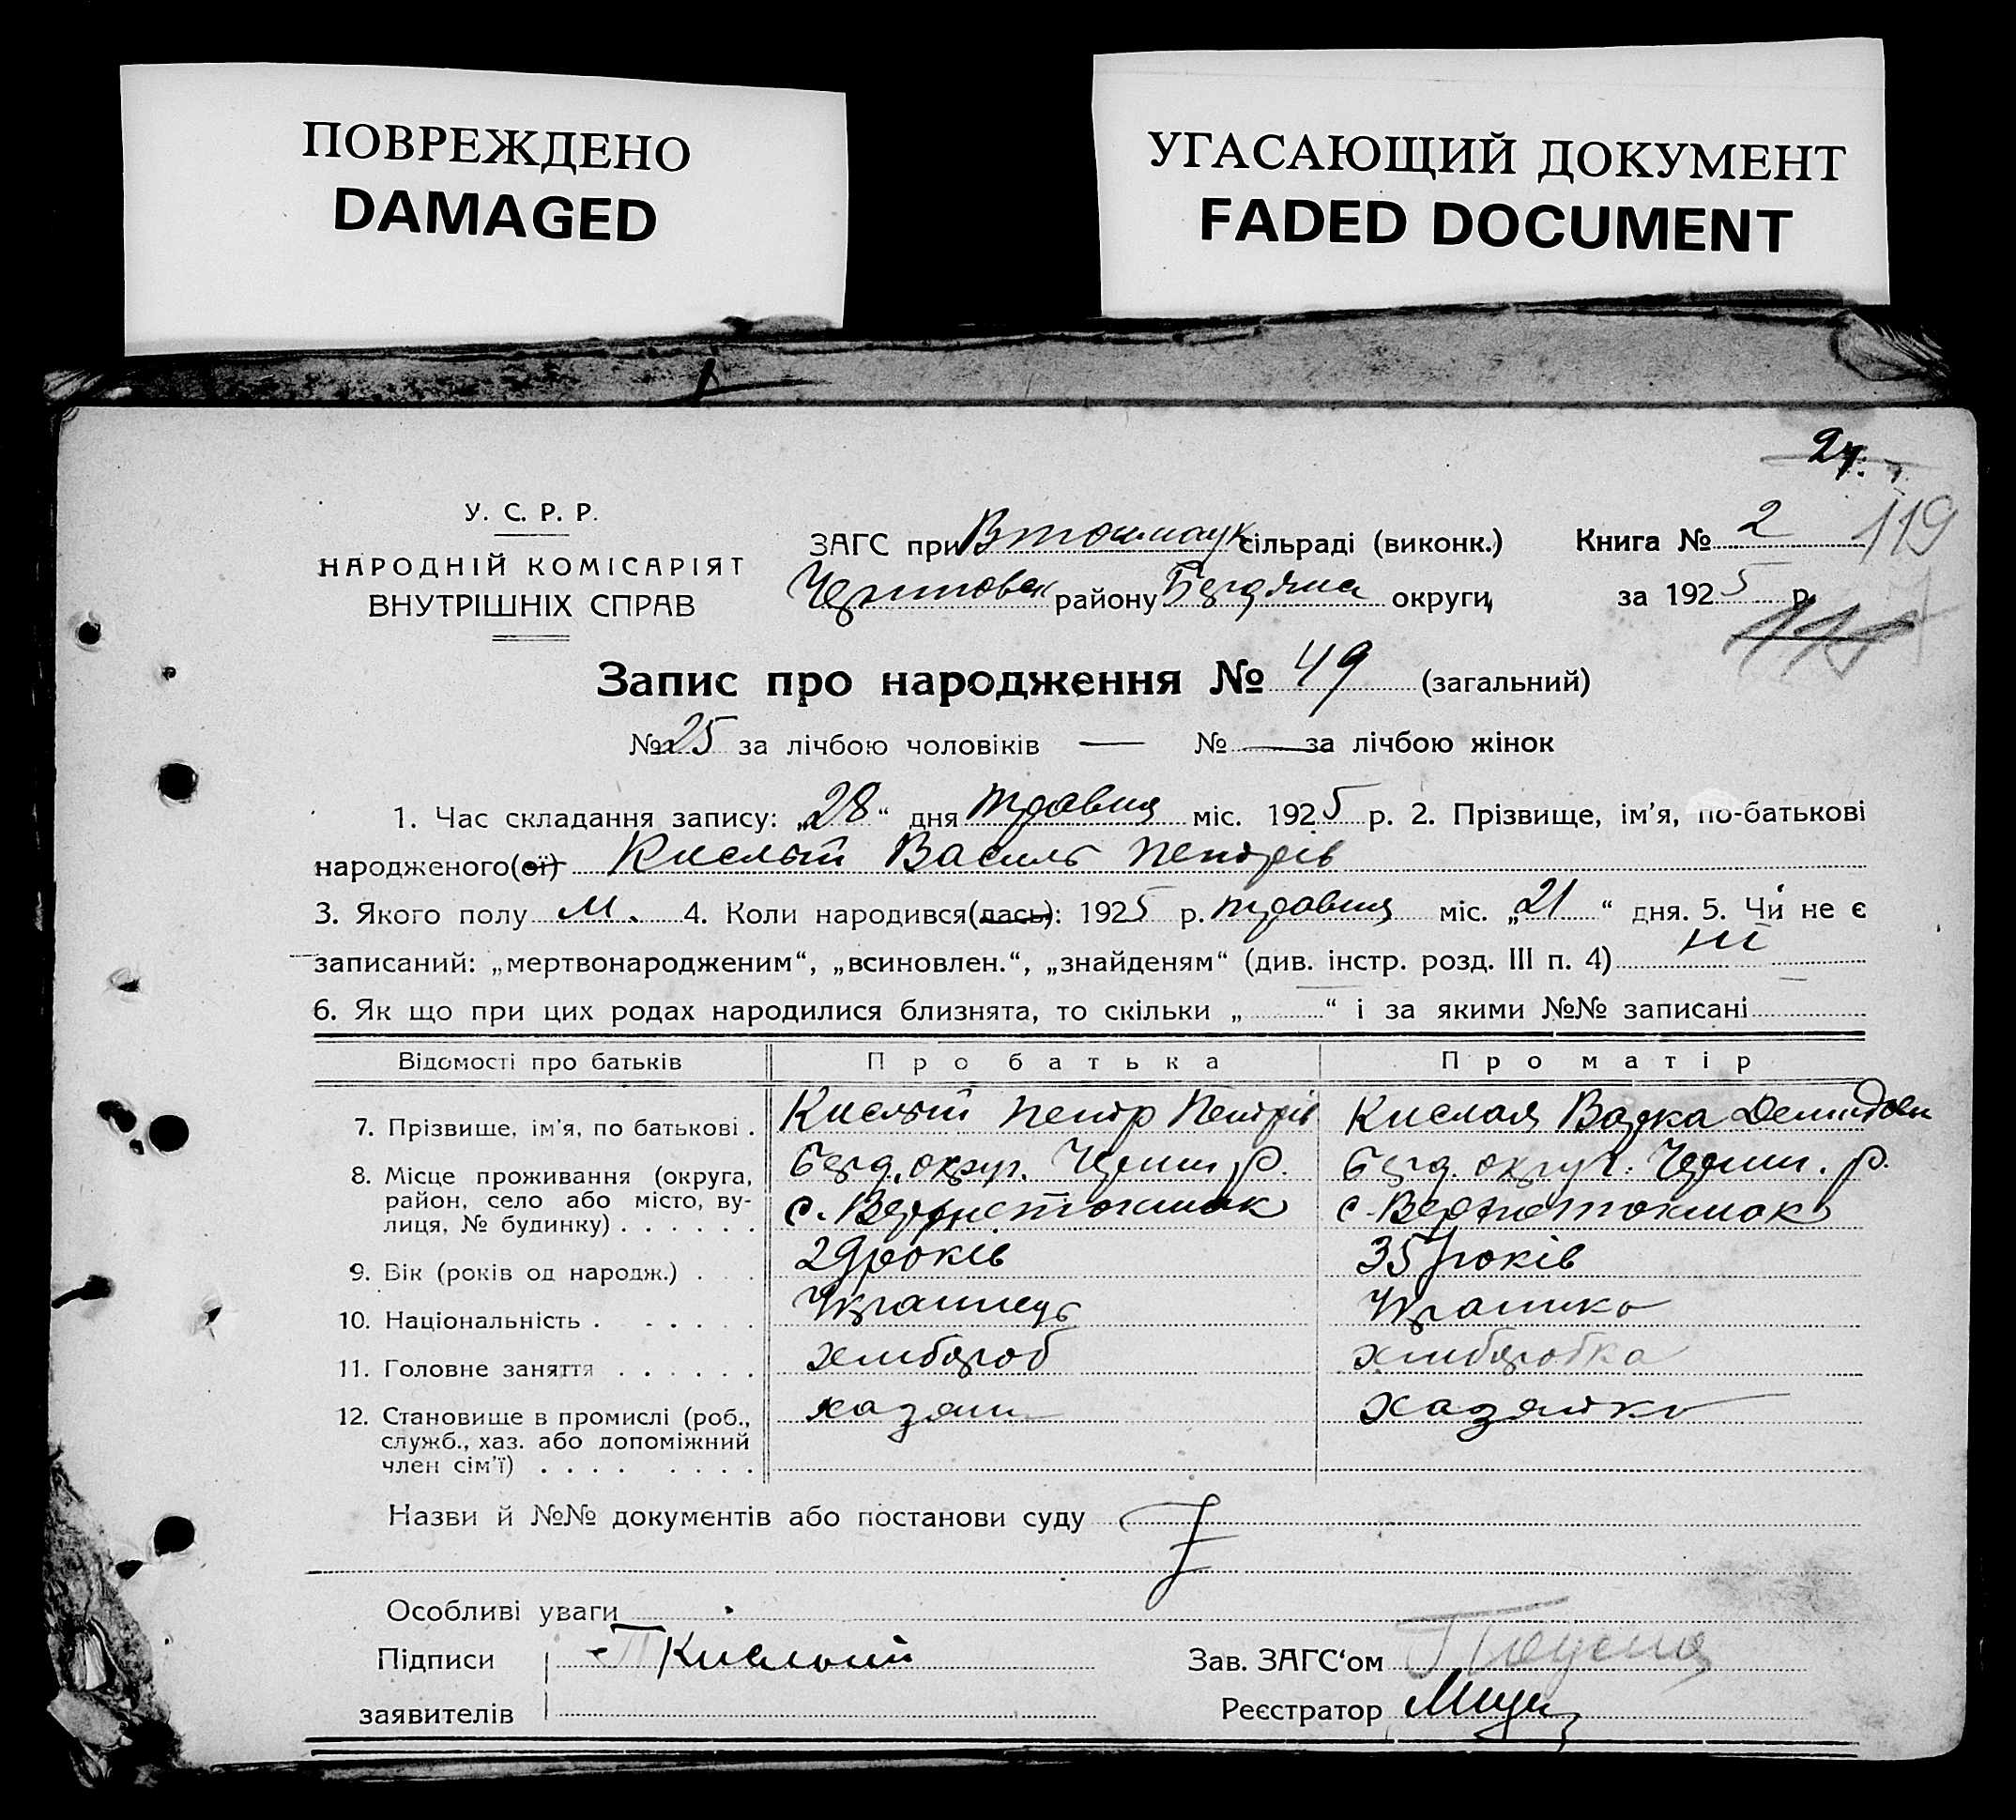 ПОВРЕЖДЕНО
DAMAGED
УГАСАЮЩИЙ ДОКУМЕНТ
FADED DOCUMENT
24.
119
У. С. Р. Р.
НАРОДНІЙ КОМІСАРІЯТ
ВНУТРІШНІХ СПРАВ
ЗАГС при Втокмацк сільраді (виконк.)
району Бердянс округи,
Книга № 2
за 1925 р.
Запис про народження № 49 (загальний)
№ 25 за лічбою чоловіків — № — за лічбою жінок
1. Час складання запису: „28“ дня травня міс. 1925 р. 2. Прізвище, ім'я, по-батькові
народженого(ої) Кислый Василь Петрів
3. Якого полу м. 4. Коли народився(лась): 1925 р. травня міс. „21“ дня. 5. Чи не є
записаний: „мертвонародженим“, „всиновлен.“, „знайденям“ (див. інстр. розд. III п. 4) ні
6. Як що при цих родах народилися близнята, то скільки „ “ і за якими №№ записані
Відомості про батьків Про батька Про матір
7. Прізвище, ім'я, по батькові . Кислый Петр Петрів Кислая Варка Демидовн
8. Місце проживання (округа, Берд. округ. Черниг. р. Берд. округ. Черниг. р.
район, село або місто, ву- с. Вернетокмак с. Вернетокмак
лиця, № будинку) . . . . . .
9. Вік (років од народж.) . . . 29 років 35 років
10. Національність . . . . . . Українець Українка
11. Головне заняття . . . . . . хлібороб хліборобка
12. Становище в промислі (роб., хазяин хазяйка
служб., хаз. або допоміжний
член сім'ї) . . . . . . . .
Назви й №№ документів або постанови суду
Особливі уваги
Підписи П Кислый
заявителів
Зав. ЗАГС'ом
Реєстратор